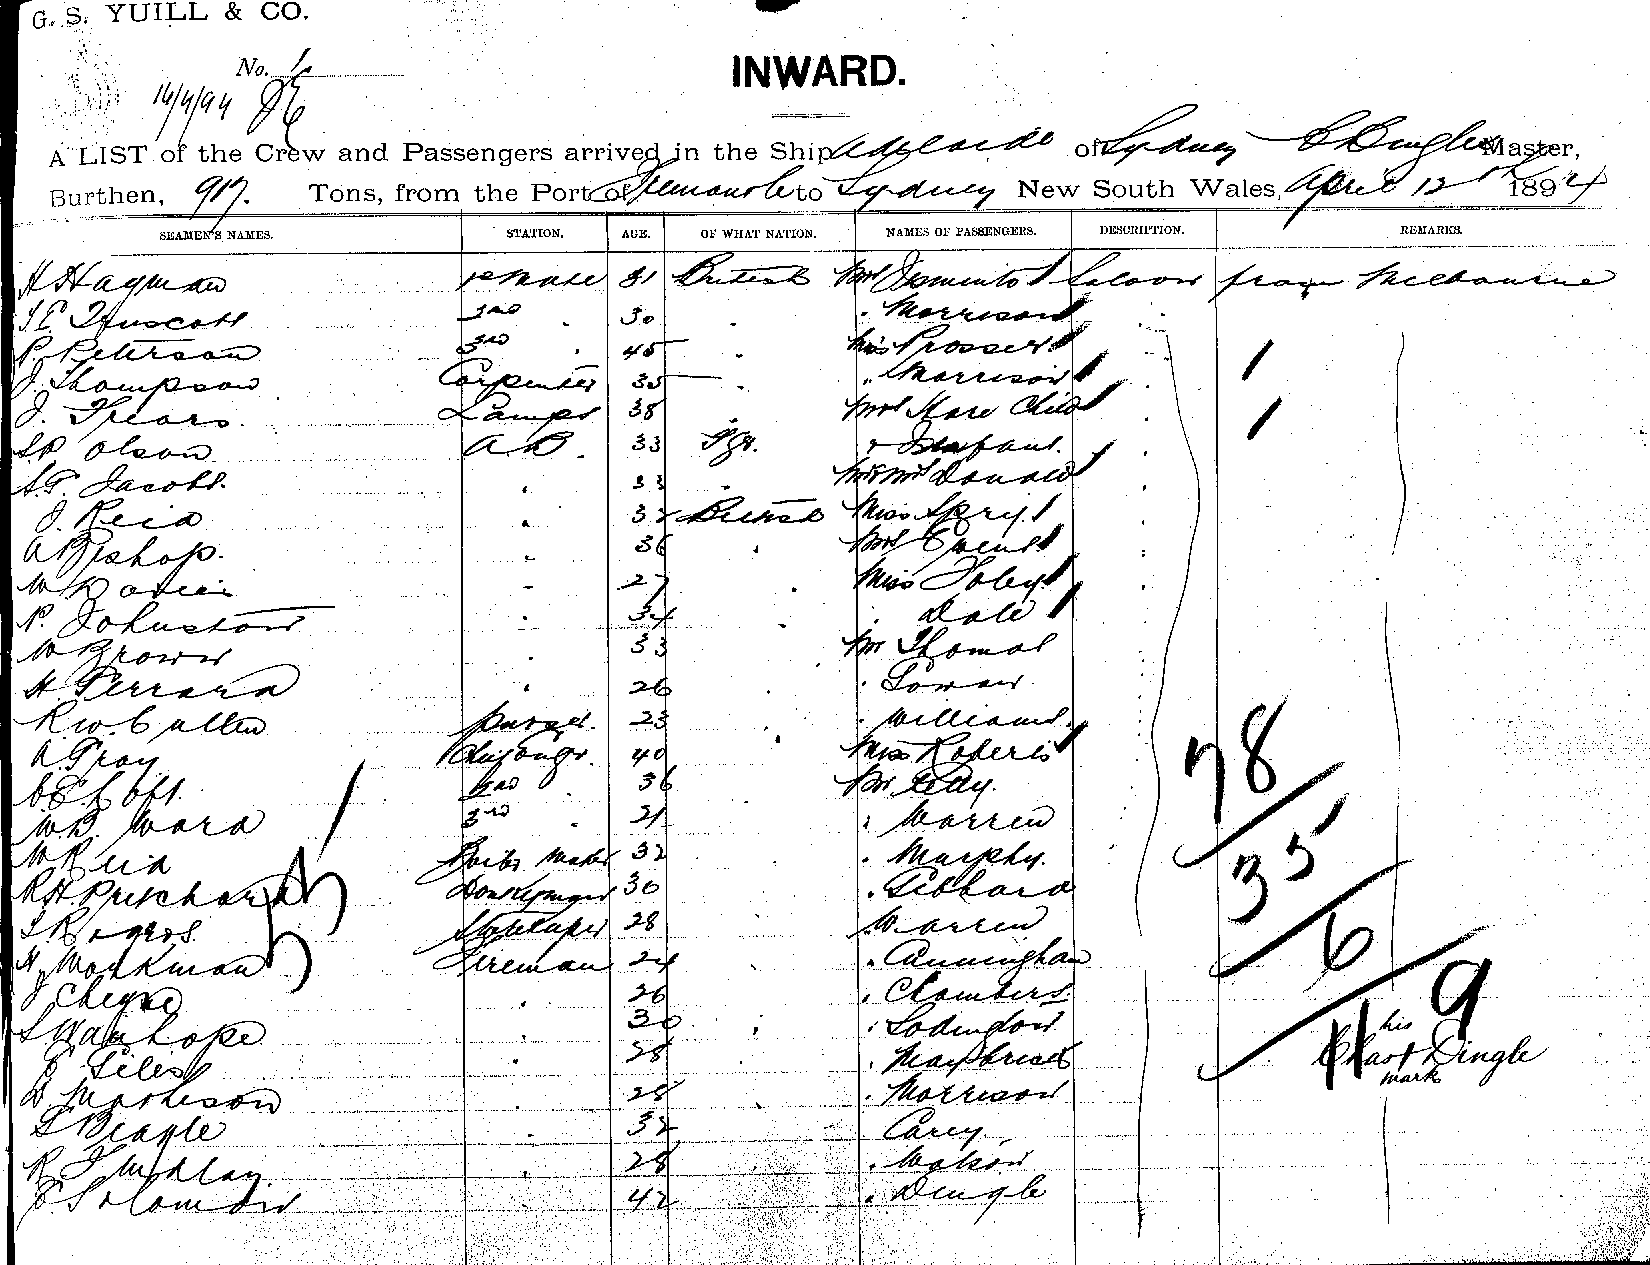 G. S. YUILL & CO.
No. 1
INWARD.
16/4/94
A LIST of the Crew and Passengers arrived in the Ship Adelaide of Sydney C Dingle Master,
Burthen, 917. Tons, from the Port of Fremantle to Sydney New South Wales, April 12th 1894
SEAMEN'S NAMES. STATION. AGE. OF WHAT NATION. NAMES OF PASSENGERS. DESCRIPTION. REMARKS.
H Hagman 1st Mate 31 British Mrs Saloon from Melbourne
2nd 30 Morrison
P. Peterson 3rd 45 Miss Prosser
J. Thompson Carpenter 35 " Morrison
J. Frears Lamps 38 Mrs Hare Child
Olson AB. 33 Infant.
Jacobs. 33 Donald
J. Reid 32 British Miss Spry
A Bishop. 36 Mrs
W 27 Miss Foley
P. Johnston 34 Dale
W Brown 33 Mr Thomas
H Ferrara 26
R W Cullen purser. 23 Williams
A Gray Chief Engr. 40 Miss Roberts
2nd 36 Mr
W.B. Ward 3rd 21 Warren
W Reid Boiler Maker 32 Murphy.
R H Pritchard Donkeyman 30 Gebhard
S Rogers. Storekeeper 28 Warren
H Workman Fireman 24 Cunningham
J Cheyne 26 Chambers
S Wauhope 30
Giles 28
D Mathieson 28 Morrison
S Beagle 32 Carey.
R 28 Watson
Solomon 42 Dingle
78
35
6
9
his
Chas Dingle
mark